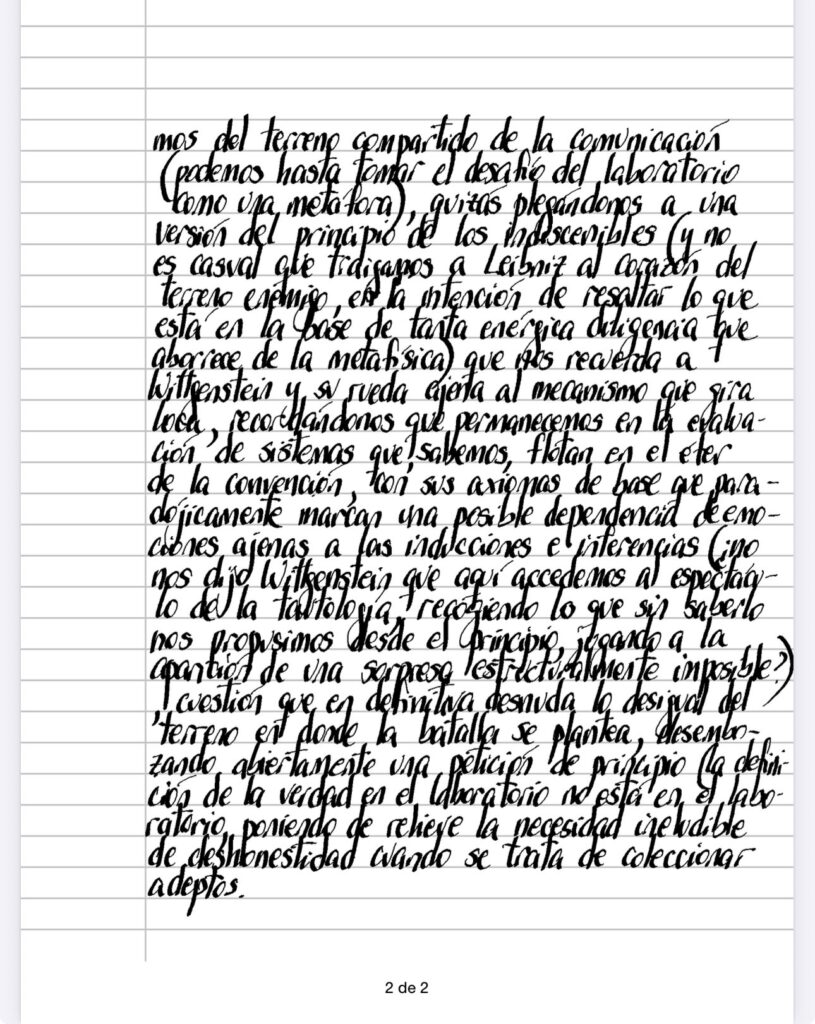 mos del terreno compartido de la comunicación
(podemos hasta tomar el desafío del laboratorio
como una metáfora), quizás plegándonos a una
versión del principio de los indiscenibles (y no
es casual que traigamos a Leibniz al corazón del
terreno enemigo, en la intención de resaltar lo que
está en la base de tanta enérgica diligencia que
aborrece de la metafísica) que nos recuerda a
Wittgenstein y su rueda ajena al mecanismo que gira
loca, recordándonos que permanecemos en la evalua-
ción de sistemas que, sabemos, flotan en el éter
de la convención, con sus axiomas de base que para-
dójicamente marcan una posible dependencia de emo-
ciones ajenas a las inducciones e inferencias (¿no
nos dijo Wittgenstein que aquí accedemos al espectácu-
lo de la tautología, recogiendo lo que sin saberlo
nos propusimos desde el principio, jugando a la
aparición de una sorpresa estructuralmente imposible?)
cuestión que en definitiva desnuda lo desigual del
terreno en donde la batalla se plantea, desembo-
zando abiertamente una petición de principio (la defini-
ción de la verdad en el laboratorio no está en el labo-
ratorio, poniendo de relieve la necesidad ineludible
de deshonestidad cuando se trata de coleccionar
adeptos.
2 de 2